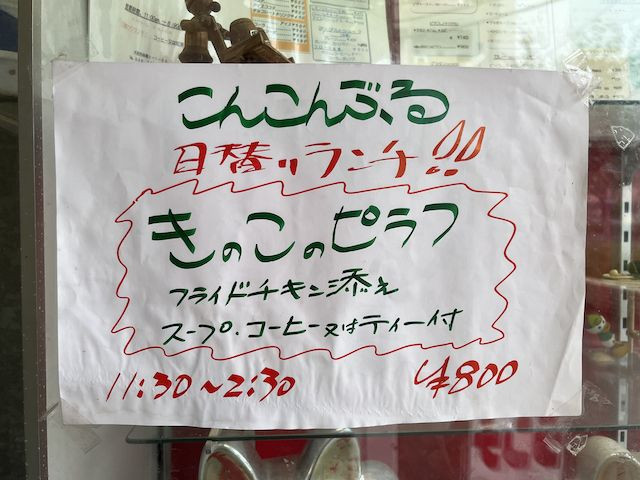 こんこんぶる
日替りランチ!!
きのこのピラフ
フライドチキン添え
スープ・コーヒー又はティー付
11:30～2:30
¥800